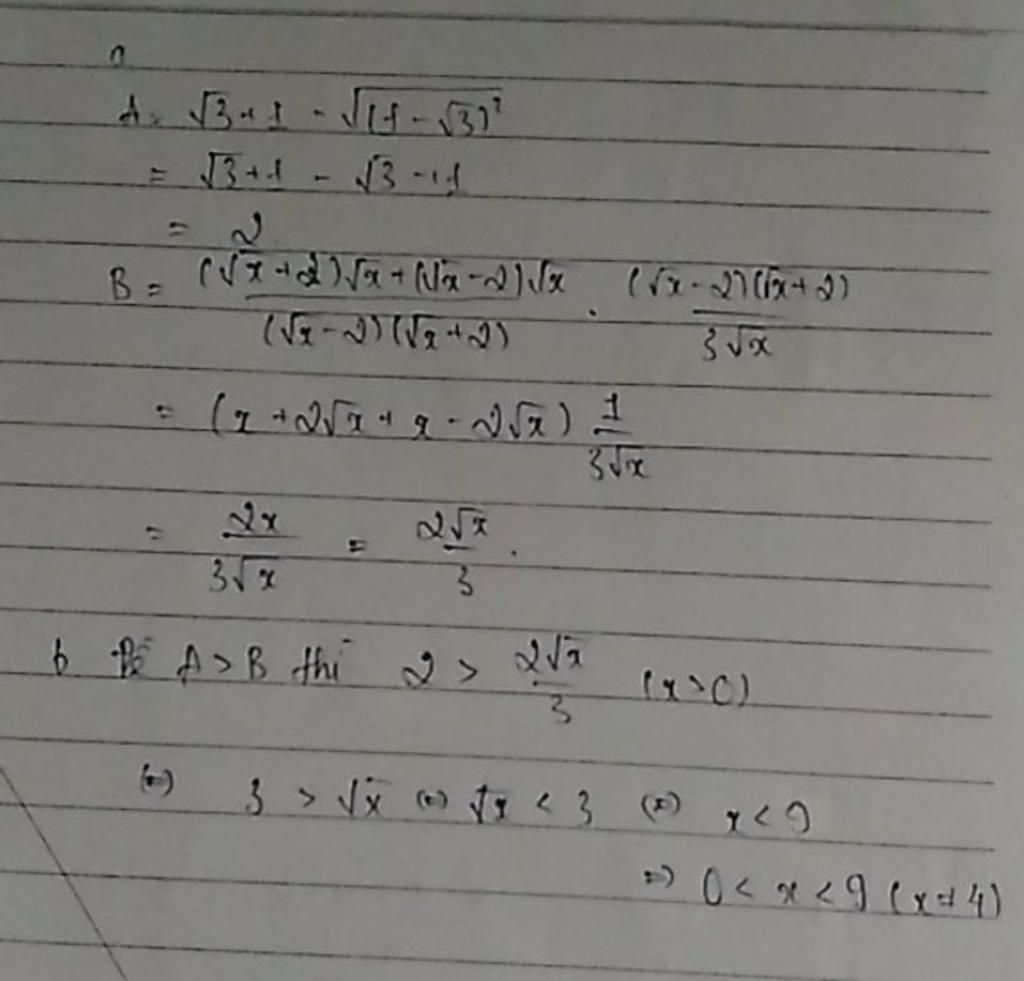 a
A = √3 + 1 - √(1 - √3)²
= √3 + 1 - √3 + 1
= 2
B = ((√x + 2)√x + (√x - 2)√x) / ((√x - 2)(√x + 2)) . ((√x - 2)(√x + 2)) / (3√x)
= (x + 2√x + x - 2√x) 1 / (3√x)
= 2x / (3√x) = 2√x / 3 .
b Để A > B thì 2 > 2√x / 3 (x > 0)
(=) 3 > √x (=) √x < 3 (=) x < 9
=) 0 < x < 9 (x ≠ 4)